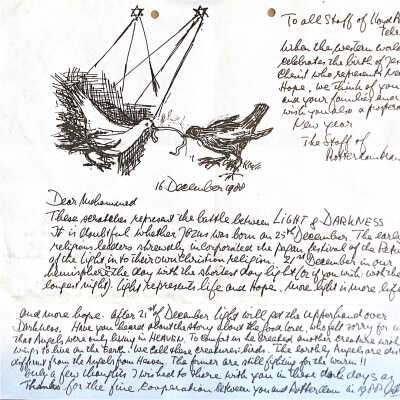 To all Staff of Lloyd
When the western
celebrates the birth of
Christ who represents
Hope, we think of you
and your families
wish you also a
New year
The Staff of
Rotterdam
16 December 1988
Dear Mohammed
These scratches represent the battle between LIGHT & DARKNESS
It is doubtful whether Jezus was born on 25th December. The
religious leaders shrewdly incorporated the pagan festival of the
of the light into their own Christian religion. 21st December in our
hemisphere the day with the shortest day light (or if you wish: with the
longest night). Light represents life and Hope. More light is more life
and more hope. After 21st of December light will get the upperhand over
Darkness. Have you heard about the story about the food lord, who felt sorry for
that Angels were only living in HEAVEN. To comfort us he created another creature
wings to live on the Earth. We call these creatures: birds. The earthly Angels are
different from the Angels from Heaven. The former are still fighting for the worm!!
Only a few thoughts I wished to share with you in these dark days
Thanks for the fine cooperation between you and Rotterdam in 1988